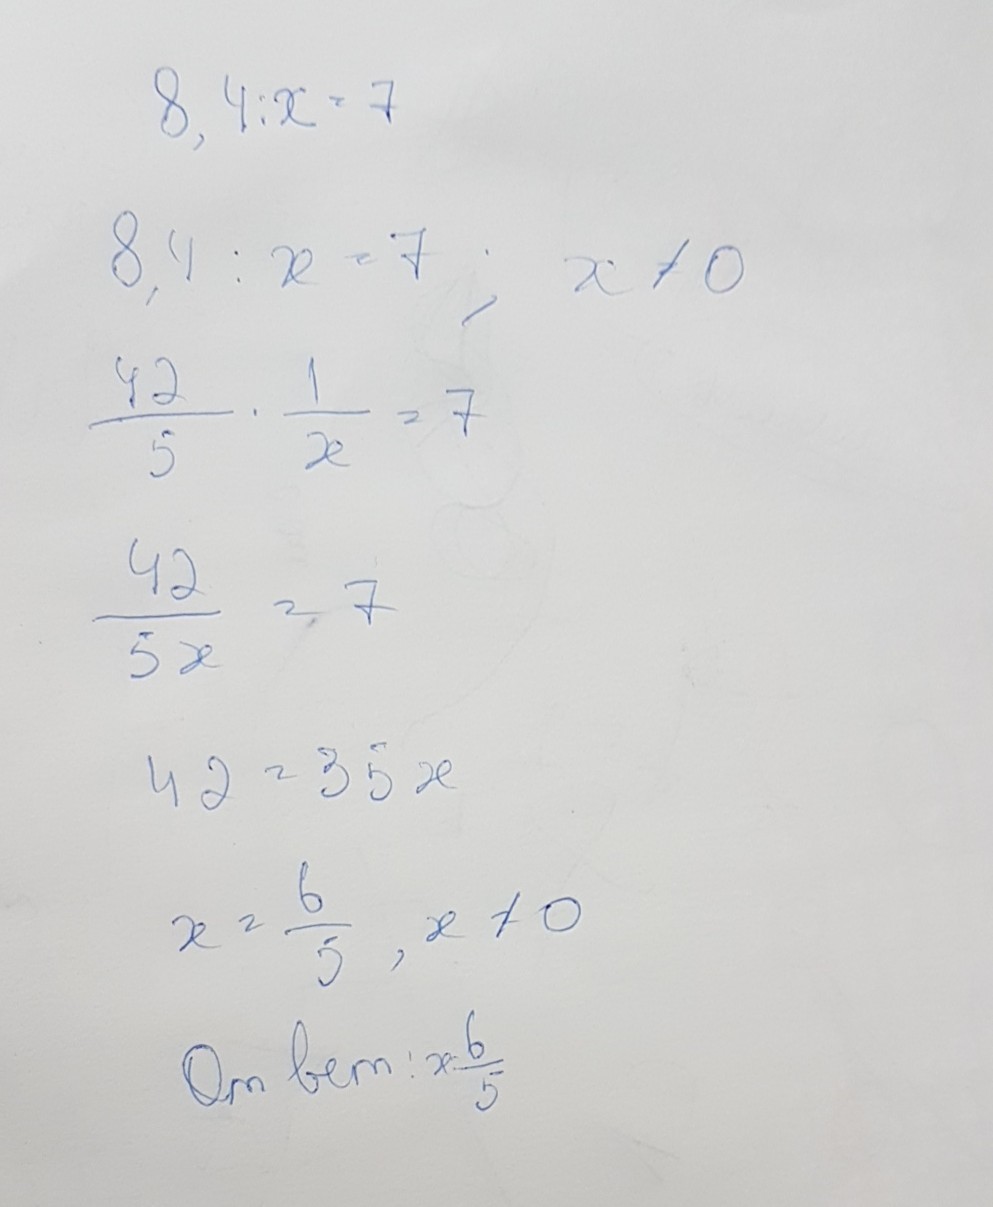 8,4:x=7
8,4:x=7; x≠0
42/5 · 1/x = 7
42/5x = 7
42=35x
x=6/5, x≠0
Ответ: x=6/5